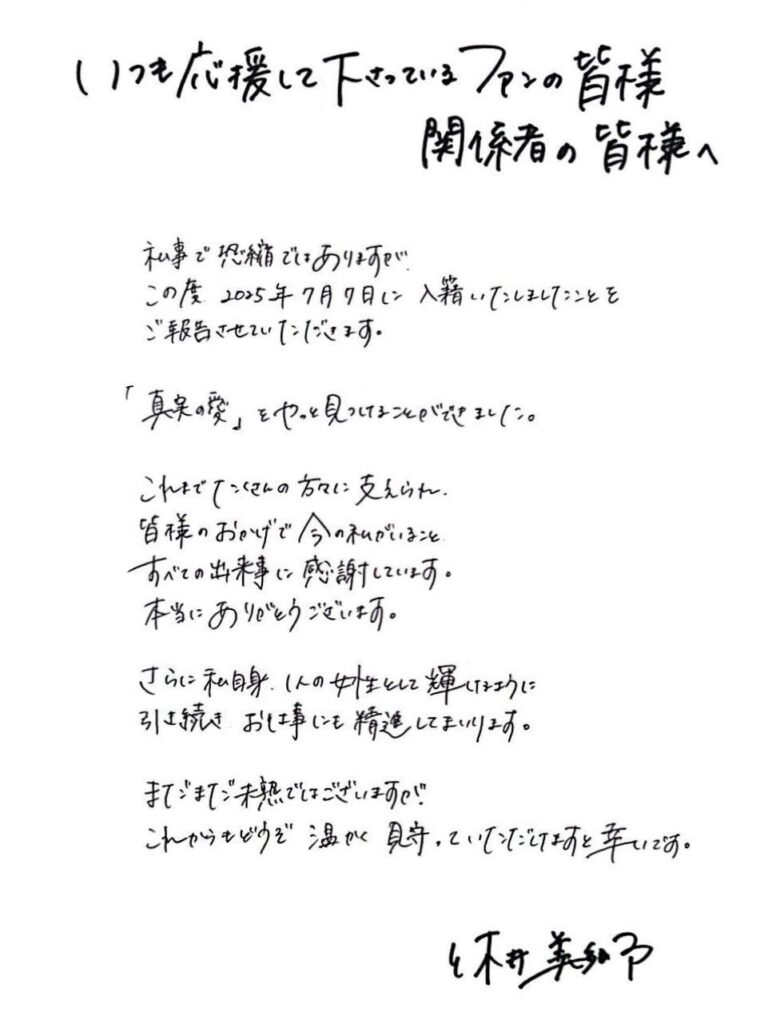 いつも応援して下さっているファンの皆様
関係者の皆様へ
私事で恐縮ではありますが
この度 2025年7月7日に 入籍いたしましたことを
ご報告させていただきます。
「真実の愛」をやっと見つけることができました。
これまでたくさんの方々に支えられ、
皆様のおかげで今の私がいること
すべての出来事に感謝しています。
本当にありがとうございます。
さらに私自身、1人の女性として輝けるように
引き続き お仕事にも精進してまいります。
まだまだ未熟ではございますが
これからもどうぞ 温かく 見守っていただけますと幸いです。
木井美